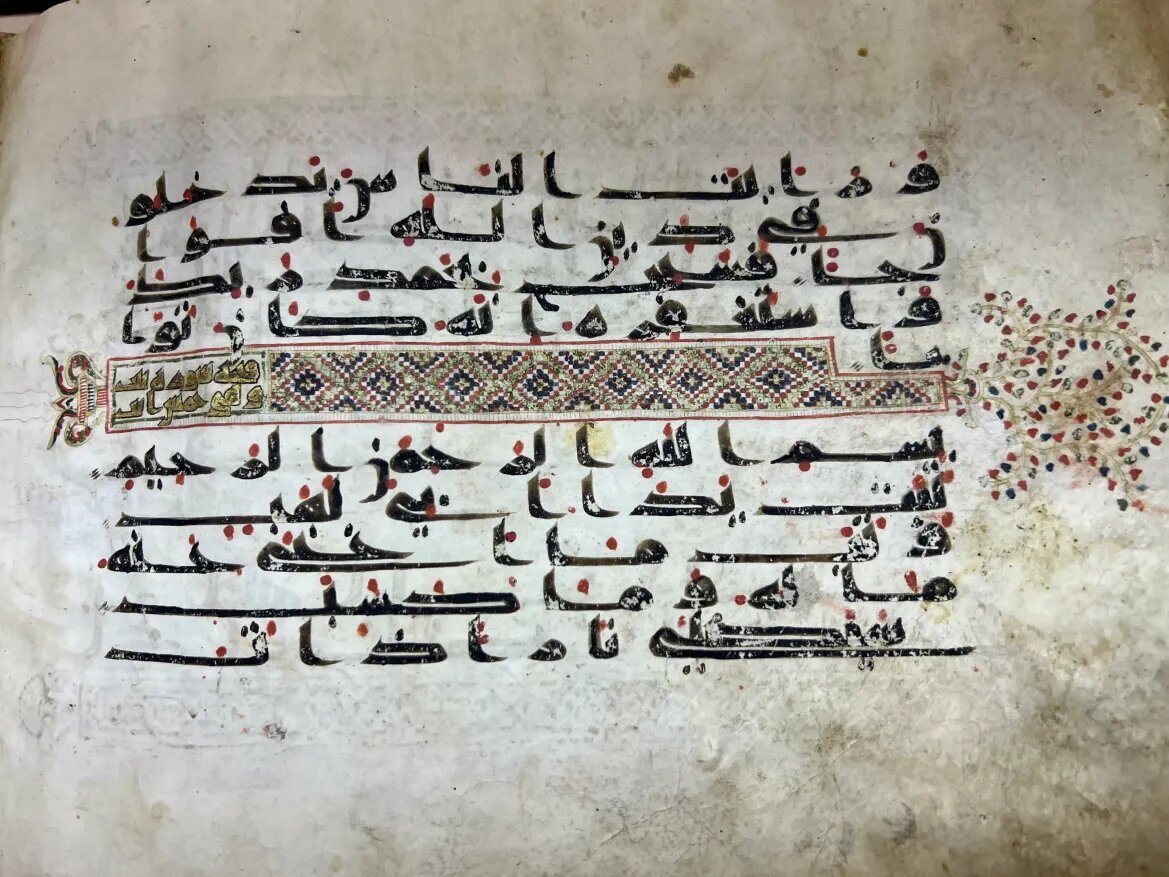 ورايت الناس يدخلو
ن في دين الله افوا
جا فسبح بحمد ربك
واستغفره انه كان توا
با
سورة تبت
وهي خمس ايت
بسم الله الرحمن الرحيم
تبت يدا ابي لهب
وتب ما اغنى عنه
ماله وما كسب
سيصلى نارا ذات